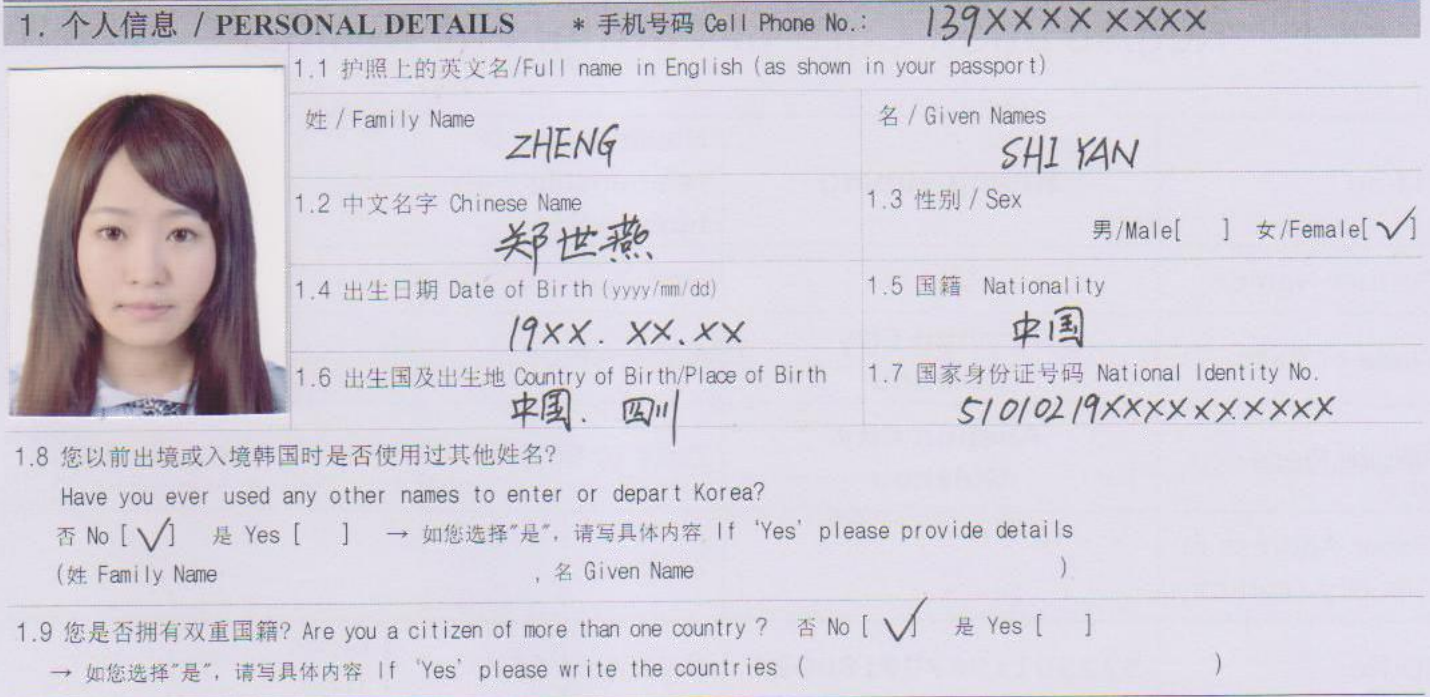 1. 个人信息 / PERSONAL DETAILS * 手机号码 Cell Phone No.: 139XXXX XXXX
1.1 护照上的英文名/Full name in English (as shown in your passport)
姓 / Family Name 名 / Given Names
ZHENG SHI YAN
1.2 中文名字 Chinese Name 1.3 性别 / Sex
郑世燕 男/Male[ ] 女/Female[√]
1.4 出生日期 Date of Birth (yyyy/mm/dd) 1.5 国籍 Nationality
19XX. XX.XX 中国
1.6 出生国及出生地 Country of Birth/Place of Birth 1.7 国家身份证号码 National Identity No.
中国. 四川 51010219XXXXXXXXXX
1.8 您以前出境或入境韩国时是否使用过其他姓名?
Have you ever used any other names to enter or depart Korea?
否 No [√] 是 Yes [ ] → 如您选择"是", 请写具体内容 If 'Yes' please provide details
(姓 Family Name , 名 Given Name )
1.9 您是否拥有双重国籍? Are you a citizen of more than one country ? 否 No [√] 是 Yes [ ]
→ 如您选择"是", 请写具体内容 If 'Yes' please write the countries ( )